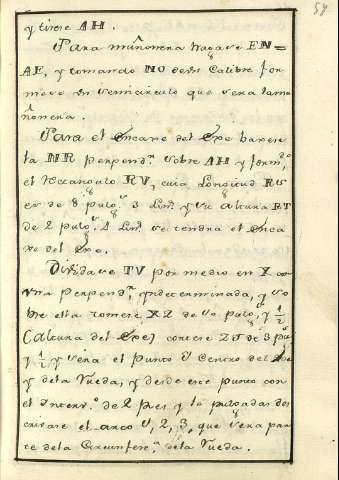 59
y tirese AH.
Para muñonera hagase EN=
AE, y tomando NO de su Calibre for
mese su semicirculo que sera la mu
ñonera.
Para el Encaxe del Exe baxese
la NR perpend.r sobre AH y form.do
el Rectangulo RV, cuia Longitud RS
es de 8 pulg.s 3 Lin.s y su altura RT
de 2 pulg.s 4 Lin.s se tendra el Enca
xe del Exe.
Dividase TV por medio en X con
una perpend.r yndeterminada, y so
bre ella tomese XZ de pulg.s y 1/2
(Altura del Exe) cortese ZJ de 3 pul
y 1/2 y sera el punto J Centro del Exe
y de la Rueda, y desde este punto con
el Interv.o de 2 Pies y 10 pulgadas des
crivase el arco 1, 2, 3, que sera par
te de la Circunfer.a de la Rueda.